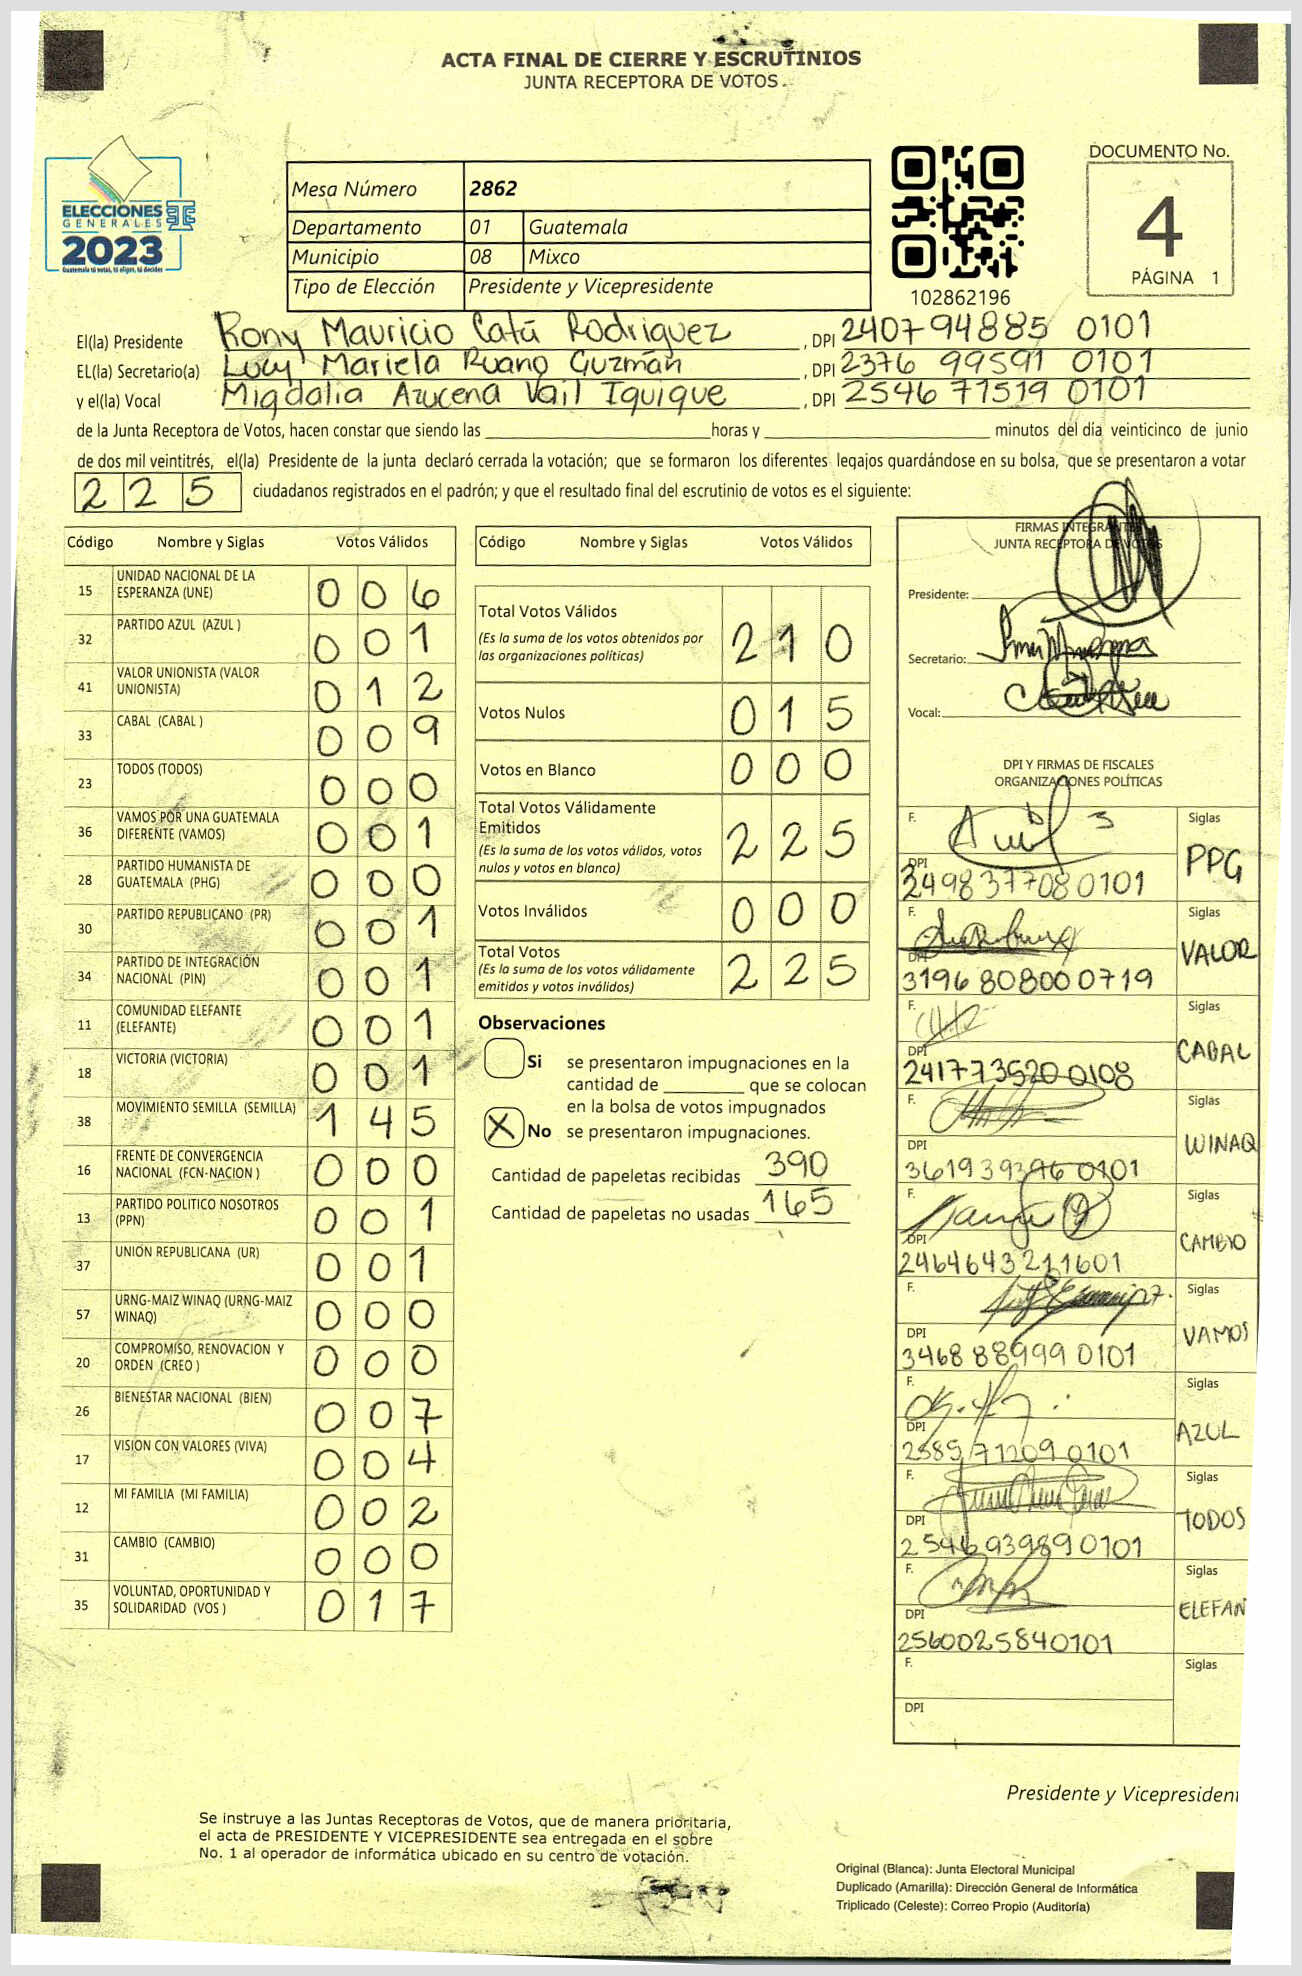 ACTA FINAL DE CIERRE Y ESCRUTINIOS
JUNTA RECEPTORA DE VOTOS
ELECCIONES
GENERALES
2023
Guatemala tú votas, tú eliges, tú decides
Mesa Número 2862
Departamento 01 Guatemala
Municipio 08 Mixco
Tipo de Elección Presidente y Vicepresidente
102862196
DOCUMENTO No.
4
PÁGINA 1
El(la) Presidente Rony Mauricio Catú Rodriguez, DPI 2407 94885 0101
EL(la) Secretario(a) Lucy Mariela Ruano Guzmán, DPI 2376 99591 0101
y el(la) Vocal Migdalia Azucena Vail Iquique, DPI 2546 71519 0101
de la Junta Receptora de Votos, hacen constar que siendo las ____ horas y ____ minutos del día veinticinco de junio
de dos mil veintitrés, el(la) Presidente de la junta declaró cerrada la votación; que se formaron los diferentes legajos guardándose en su bolsa, que se presentaron a votar
225 ciudadanos registrados en el padrón; y que el resultado final del escrutinio de votos es el siguiente:
Código Nombre y Siglas Votos Válidos
15 UNIDAD NACIONAL DE LA ESPERANZA (UNE) 006
32 PARTIDO AZUL (AZUL ) 001
41 VALOR UNIONISTA (VALOR UNIONISTA) 012
33 CABAL (CABAL ) 009
23 TODOS (TODOS) 000
36 VAMOS POR UNA GUATEMALA DIFERENTE (VAMOS) 001
28 PARTIDO HUMANISTA DE GUATEMALA (PHG) 000
30 PARTIDO REPUBLICANO (PR) 001
34 PARTIDO DE INTEGRACIÓN NACIONAL (PIN) 001
11 COMUNIDAD ELEFANTE (ELEFANTE) 001
18 VICTORIA (VICTORIA) 001
38 MOVIMIENTO SEMILLA (SEMILLA) 145
16 FRENTE DE CONVERGENCIA NACIONAL (FCN-NACION ) 000
13 PARTIDO POLITICO NOSOTROS (PPN) 001
37 UNION REPUBLICANA (UR) 001
57 URNG-MAIZ WINAQ (URNG-MAIZ WINAQ) 000
20 COMPROMISO, RENOVACION Y ORDEN (CREO ) 000
26 BIENESTAR NACIONAL (BIEN) 007
17 VISION CON VALORES (VIVA) 004
12 MI FAMILIA (MI FAMILIA) 002
31 CAMBIO (CAMBIO) 000
35 VOLUNTAD, OPORTUNIDAD Y SOLIDARIDAD (VOS ) 017
Código Nombre y Siglas Votos Válidos
Total Votos Válidos 210
(Es la suma de los votos obtenidos por
las organizaciones politicas)
Votos Nulos 015
Votos en Blanco 000
Total Votos Válidamente
Emitidos 225
(Es la suma de los votos válidos, votos
nulos y votos en blanco)
Votos Inválidos 000
Total Votos 225
(Es la suma de los votos válidamente
emitidos y votos inválidos)
Observaciones
Si se presentaron impugnaciones en la
cantidad de ____ que se colocan
en la bolsa de votos impugnados
X No se presentaron impugnaciones.
Cantidad de papeletas recibidas 390
Cantidad de papeletas no usadas 165
FIRMAS INTEGRANTES
JUNTA RECEPTORA DE VOTOS
Presidente:
Secretario:
Vocal:
DPI Y FIRMAS DE FISCALES
ORGANIZACIONES POLÍTICAS
F. Siglas PPG
DPI 2498377080101
F. Siglas VALOR
DPI 3196 80800 0719
F. Siglas CABAL
DPI 2417735200108
F. Siglas WINAQ
DPI 3619393960101
F. Siglas CAMBIO
DPI 2464643211601
F. Siglas VAMOS
DPI 3468 88999 0101
F. Siglas AZUL
DPI 2585 71209 0101
F. Siglas TODOS
DPI 2546939890101
F. Siglas ELEFAN
DPI 2560025840101
F. Siglas
DPI
Presidente y Vicepresident
Se instruye a las Juntas Receptoras de Votos, que de manera prioritaria,
el acta de PRESIDENTE Y VICEPRESIDENTE sea entregada en el sobre
No. 1 al operador de informática ubicado en su centro de votación.
Original (Blanca): Junta Electoral Municipal
Duplicado (Amarilla): Dirección General de Informática
Triplicado (Celeste): Correo Propio (Auditoría)